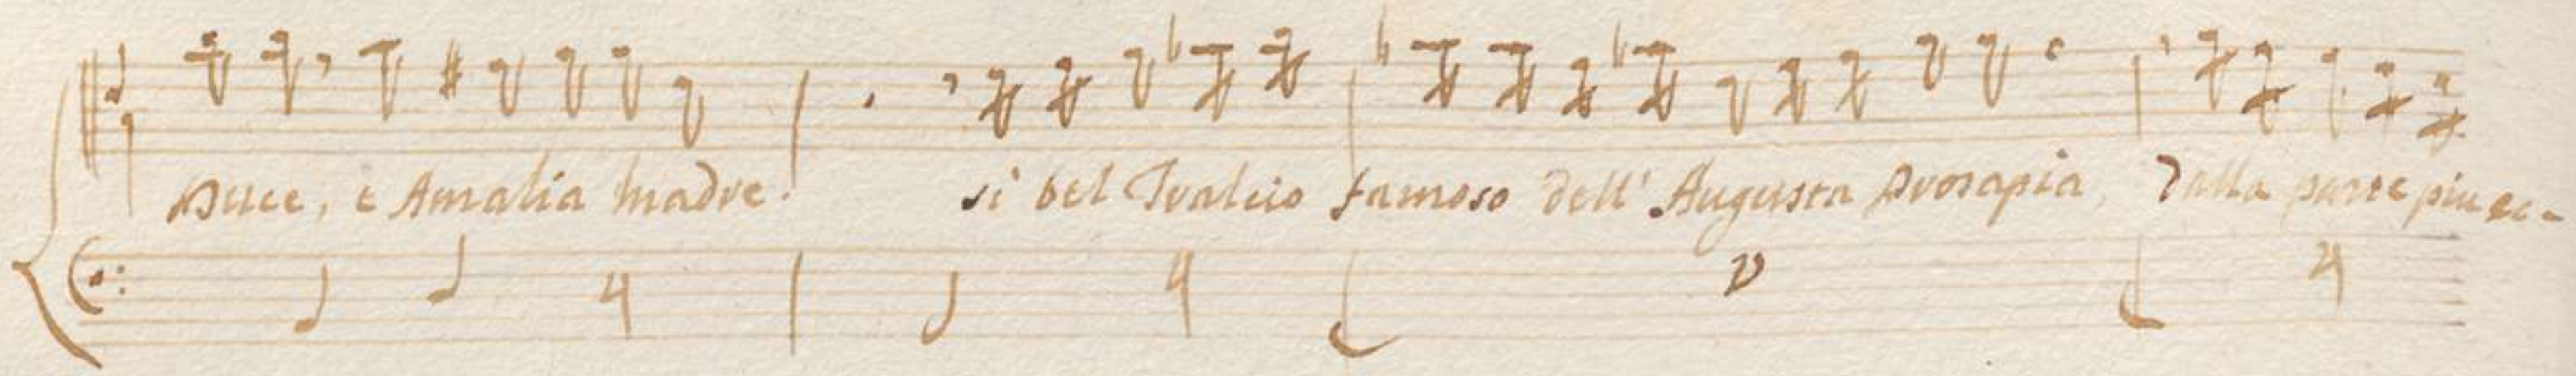 Duce, e Amalia madre. si bel Tralcio famoso dell' Augusta Prosapia, Dalla parte più ec-